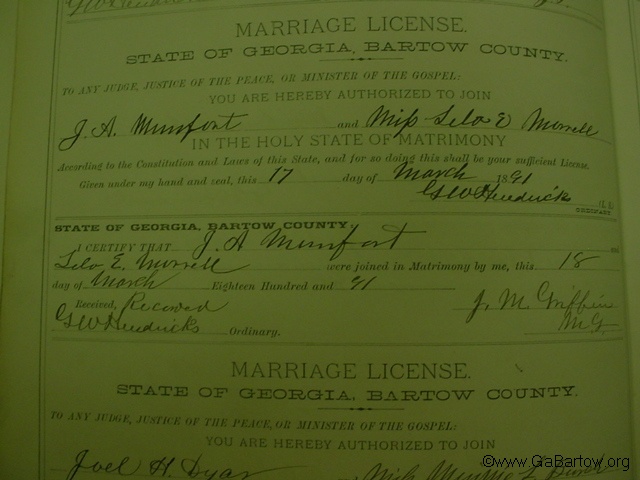 MARRIAGE LICENSE.
STATE OF GEORGIA, BARTOW COUNTY.
TO ANY JUDGE, JUSTICE OF THE PEACE, OR MINISTER OF THE GOSPEL:
YOU ARE HEREBY AUTHORIZED TO JOIN
J. A. Mumfort and Miss Lela E Morrell
IN THE HOLY STATE OF MATRIMONY
According to the Constitution and Laws of this State, and for so doing this shall be your sufficient License.
Given under my hand and seal, this 17 day of March 1891
GW Hendricks
ORDINARY.
STATE OF GEORGIA, BARTOW COUNTY
I CERTIFY THAT J. A Mumfort and
Lela E. Morrell were joined in Matrimony by me, this 18
day of March Eighteen Hundred and 91
Received, Recorded J. M. Griffin
GW Hendricks Ordinary. M.G.
MARRIAGE LICENSE.
STATE OF GEORGIA, BARTOW COUNTY.
TO ANY JUDGE, JUSTICE OF THE PEACE, OR MINISTER OF THE GOSPEL:
YOU ARE HEREBY AUTHORIZED TO JOIN
Joel H. Dyar
©www.GaBartow.org